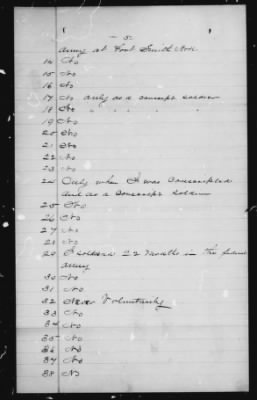 - 5 -
army at Fort Smith Ark
14 No
15 No
16 No
17 No only as a conscript soldier
18 No " " " "
19 No
20 No
21 No
22 No
23 No
24 Only when I was Conscripted
and as a Conscript soldier
25 No
26 No
27 No
28 No
29 I served 22 months in the federal
army
30 No
31 No
32 Never Voluntarily
33 No
34 No
35 No
36 No
37 No
38 No